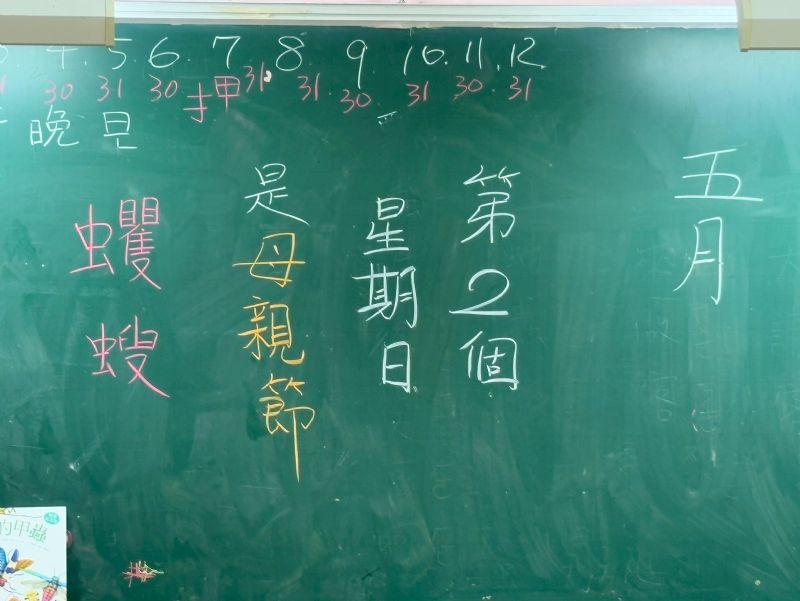 4. 5 6. 7. 8. 9. 10. 11. 12.
30 31 30 扌甲 31. 31. 30. 31 30. 31
晚
五月
第2個
星期日
是母親節
蠷螋
的甲蟲